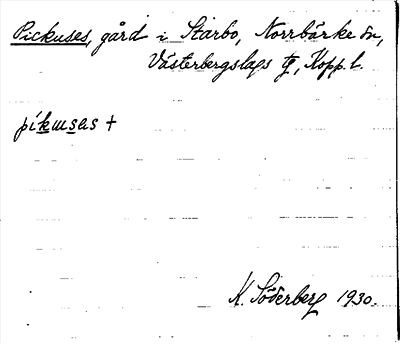 Pickuses, gård i Starbo, Norrbärke sn,
Västerbergslags tg, Kopp. l.
pikɯsas +
K. Söderberg 1930.